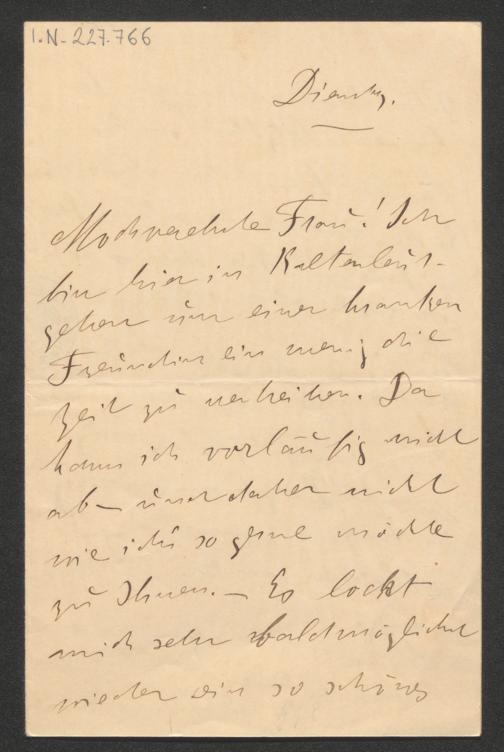 I.N. 227.766
Dienstg.
Hochverehrte Frau! Ich
bin hier in Kaltenleut-
geben um einer kranken
Freundin ein wenig die
Zeit zu vertreiben. Da
kann ich vorläufig nicht
ab – und daher nicht
wie ich's so gerne möchte
zu Ihnen. – Es lockt
mich sehr baldmöglichst
wieder ein so schönes